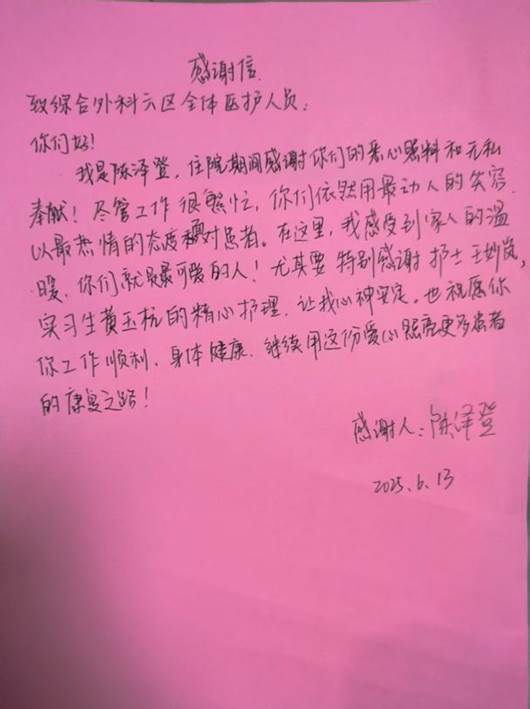 感谢信
致综合外科六区全体医护人员：
你们好！
我是陈泽登，住院期间感谢你们的悉心照料和无私
奉献！尽管工作很繁忙，你们依然用最动人的笑容
以最热情的态度对患者。在这里，我感受到家人的温
暖，你们就是最可爱的人！尤其要特别感谢护士王妙岚，
实习生黄玉杭的精心护理，让我心神安定。也祝愿你
你工作顺利，身体健康，继续用这份爱心照亮更多患者
的康复之路！
感谢人：陈泽登
2025.6.13